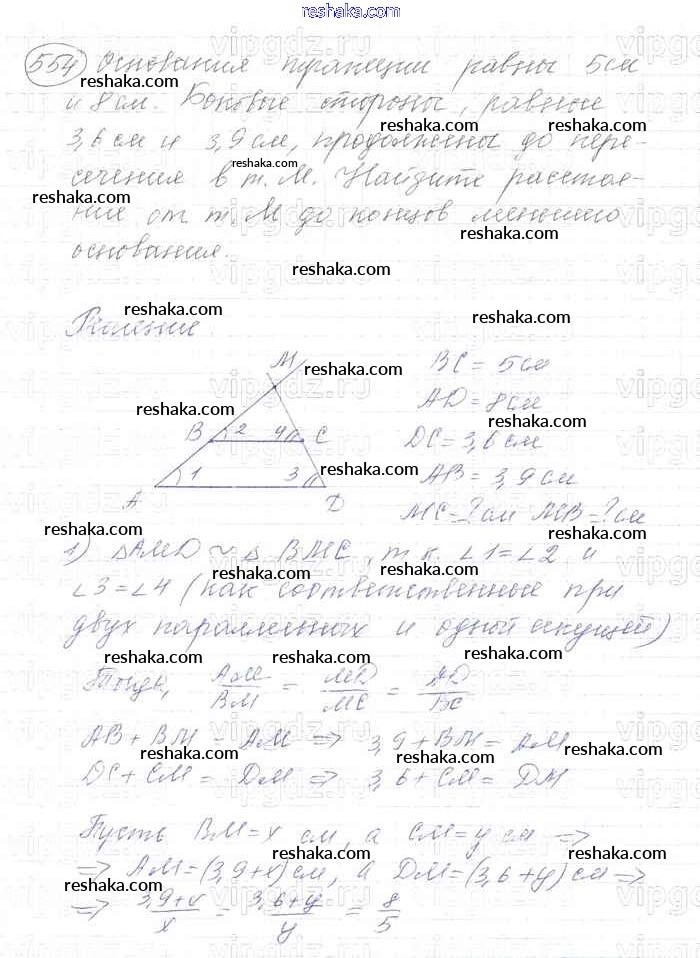 www.reshaka.com
554 Основания трапеции равны 5см
reshaka.com
и 8 см. Боковые стороны, равные
reshaka.com reshaka.com
3,6 см и 3,9 см, продолжены до пере-
reshaka.com reshaka.com
сечения в т. М. Найдите расстоя-
reshaka.com
ние от т. М до концов меньшего
reshaka.com
основания.
reshaka.com
Решение.
reshaka.com reshaka.com
M BC = 5см
reshaka.com
AD = 8см
reshaka.com
B 2 4 C DC = 3,6 см
1 3 reshaka.com
AB = 3,9 см
A D
MC = ? см MB = ? см
reshaka.com
1) △AMD ~ △BMC, т.к. ∠1=∠2 и
reshaka.com
∠3=∠4 (как соответственные при
reshaka.com
двух параллельных и одной секущей)
reshaka.com reshaka.com
Тогда, AM/BM = MD/MC = AD/BC
reshaka.com
AB + BM = AM ⇒ 3,9 + BM = AM
reshaka.com reshaka.com
DC + CM = DM ⇒ 3,6 + CM = DM
reshaka.com
Пусть BM = x см, а CM = y см ⇒
reshaka.com reshaka.com
⇒ AM = (3,9+x) см, а DM = (3,6+y) см ⇒
reshaka.com
⇒ 3,9+x/x = 3,6+y/y = 8/5
reshaka.com
vipgdz.ru